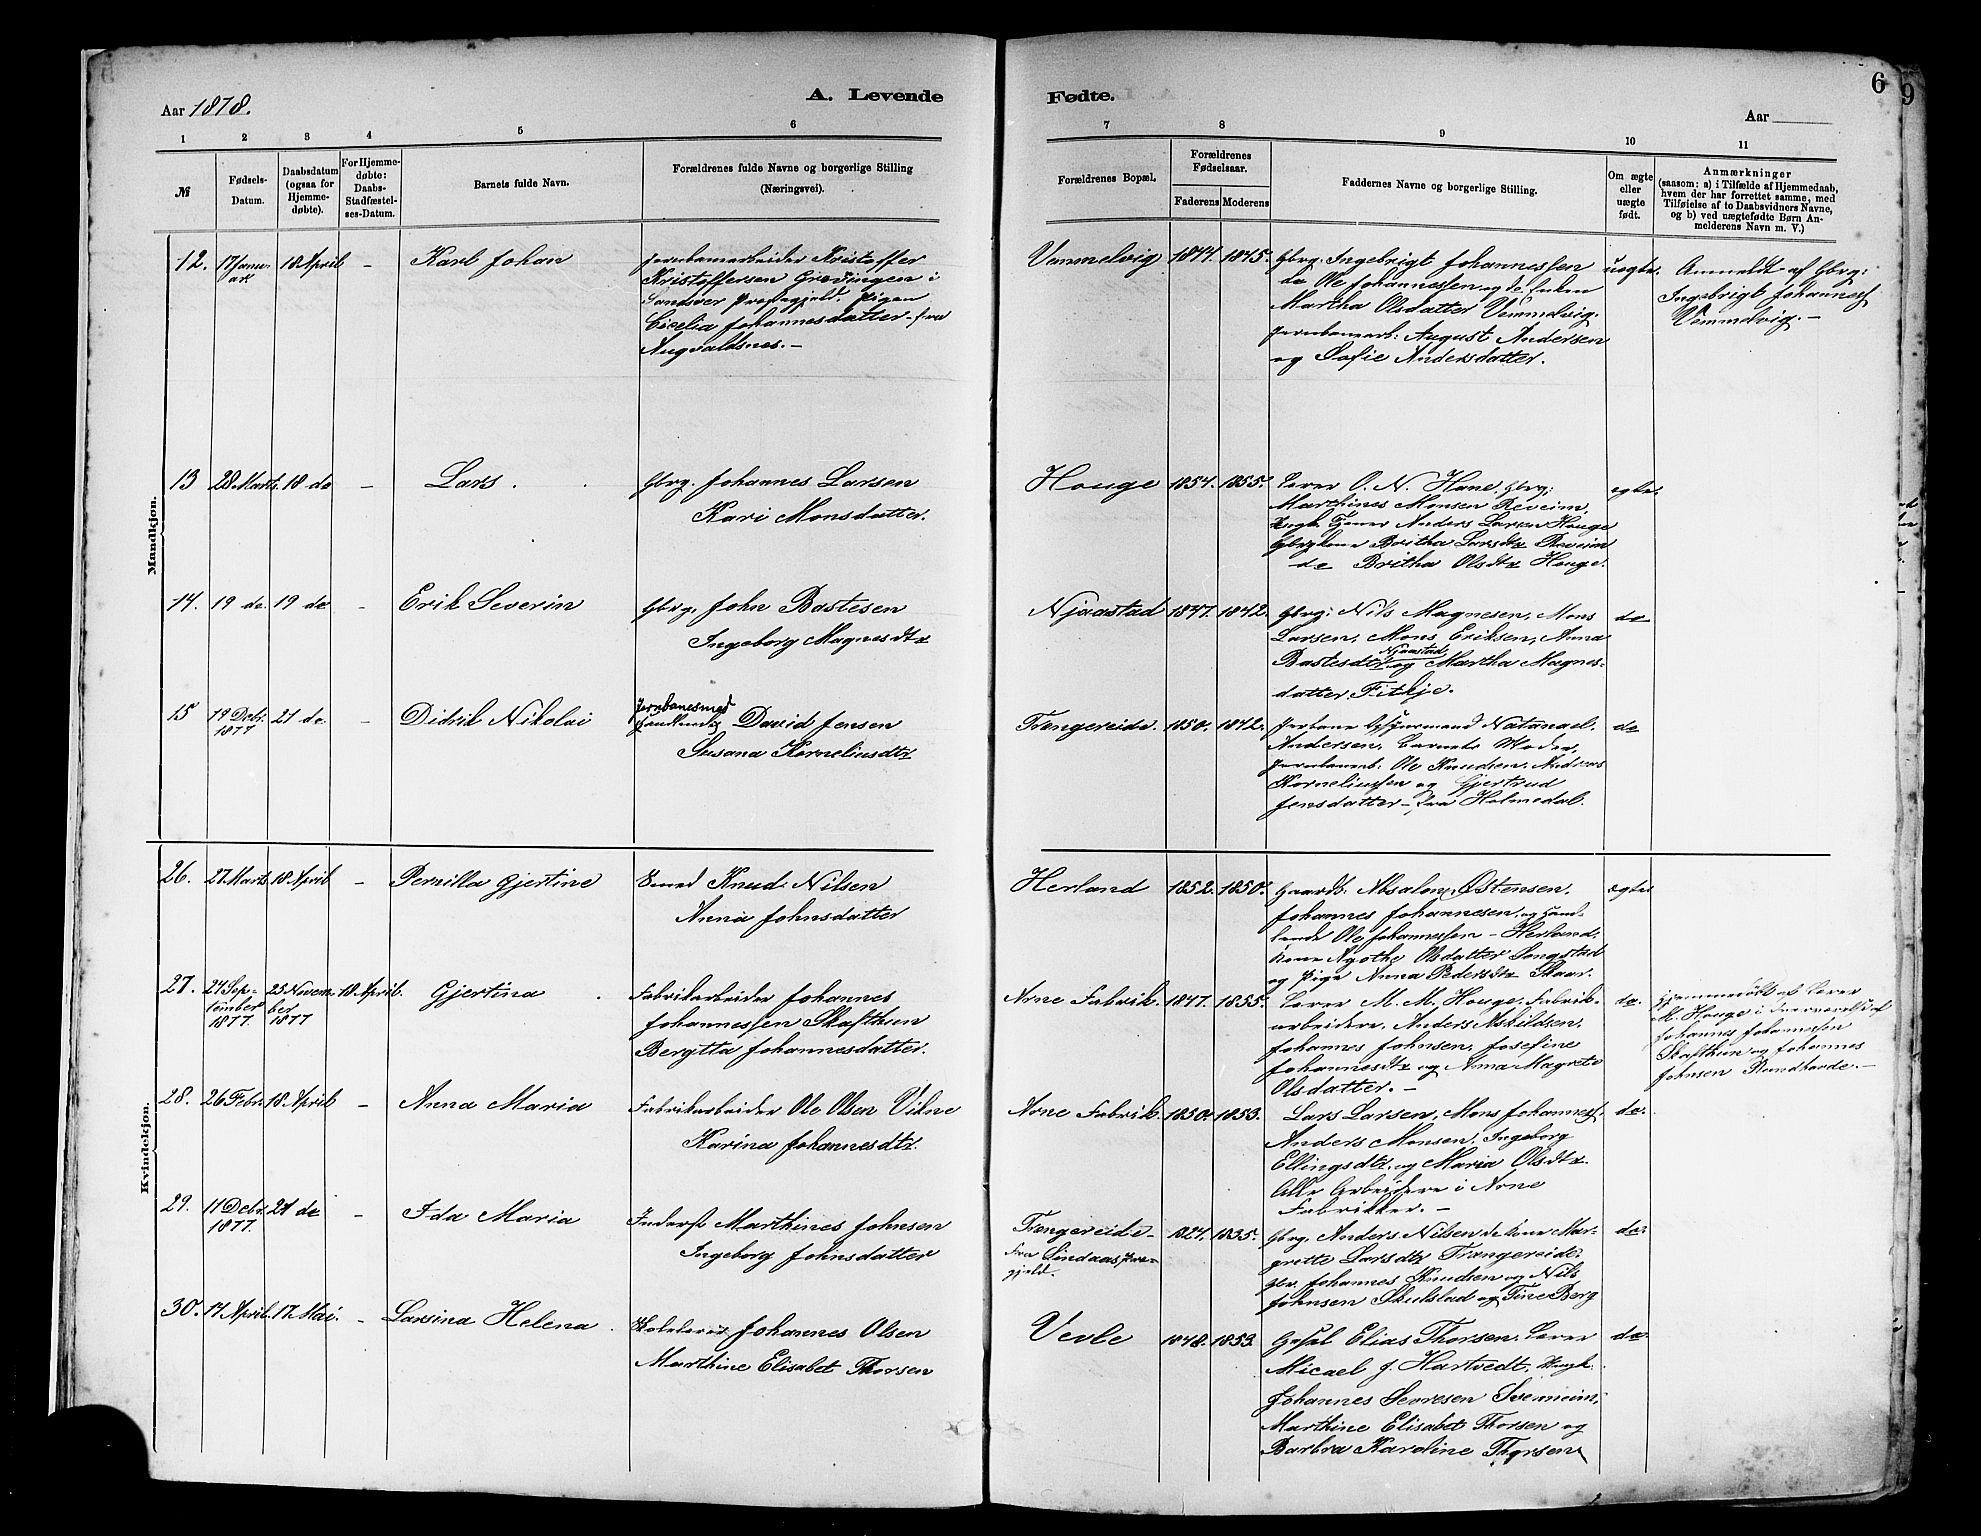 6
9
Aar 1878.
A. Levende
Fødte.
Aar
1 2 3 4 5 6
7 8 9 10 11
№
Fødsels-
Datum.
Daabsdatum
(ogsaa for
Hjemme-
døbte).
For Hjemme-
døbte:
Daabs-
Stadfæstel-
ses-Datum.
Barnets fulde Navn.
Forældrenes fulde Navne og borgerlige Stilling
(Næringsvei).
Forældrenes Bopæl.
Forældrenes
Fødselsaar.
Faderens Moderens
Faddernes Navne og borgerlige Stilling.
Om ægte
eller
uægte
født.
Anmærkninger
(saasom: a) i Tilfælde af Hjemmedaab,
hvem der har forrettet samme, med
Tilføielse af to Daabsvidners Navne,
og b) ved uægtefødte Børn An-
melderens Navn m. V.)
Mandkjøn.
12. 17 Janu-
ar. 18 April - Karl Johan
Jernbanearbeider Kristoffer
Kristoffersen Grøvingen i
Sandsver Præstegjeld. Pigen
Cicelia Johannesdatter fra
Augvaldsnes. -
Vemmelvig 1844. 1845.
Gbrg. Ingebrigt Johannessen
de Ole Johannessen og de Enken
Martha Olsdatter Vemmelvig.
Jernbanearb: August Andersen
og Sofie Andersdatter.
uegte.
Anmeldt af Gbrg:
Ingebrigt Johannesf
Vemmelvig. -
13 28 Marts. 18 de - Lars.
Gbrg. Johannes Larsen
Kari Monsdatter.
Houge 1854. 1855.
Lærer O. N. Hane. Gbrg;
Marthines Monsen Reveim,
Ungk. Tjener Anders Larsen Houge
Gbrgkone Britha Larsdtr Reveim
de Britha Olsdtr Houge.
egte.
14. 19 de. 19 de - Erik Severin
Gbrg. John Bastesen
Ingeborg Magnesdtr
Njaastad 1847. 1842.
Gbrg: Nils Magnesen, Mons
Larsen, Mons Eriksen, Anna
Bastesdtr Njaastad og Martha Magnes-
datter Fitkje.
de
15 19 Debr.
1877 21 de - Didrik Nikolai
Jernbanesmed
David Jensen
Susana Korneliusdtr
Trengereide. 1850. 1842.
Natanael
Andersen, Barnets Moder,
Jernbanearb. Ole Knudsen, Andreas
Korneliussen og Gjertrud
Jensdatter -, fra Holmedal.
de
Kvindekjøn.
26. 27 Marts 18 April - Pernilla Gjertine
Smed Knud Nilsen
Anna Johnsdatter
Herland 1852. 1850.
Gaardb. Absalon Østensen.
Johannes Johannesen, og Hand-
lende Ole Johannessen - Herland,
Kone Agathe Olsdatter Songstad
og Pige Anna Pedersdtr Skaar.
egte
27. 24 Sep-
tember
1877. 25 Novem-
ber
1877 18 April. Gjertina
Fabrikarbeider Johannes
Johannessen Skafthun
Bergitta Johannesdatter.
Arne Fabrik. 1847. 1855.
Lærer M. M. Houge. Fabrik-
arbeidere, Anders Askildsen,
Johannes Johnsen, Josefine
Johannesdtr og Anna Magrete
Olsdatter. -
de.
Hjemmedøbt af Lærer
M. Houge i Overværelse af
Johannes Johannessen
Skafthun og Johannes
Johnsen Rundhovde. -
28. 26 Febr. 18 April - Anna Maria
Fabrikarbeider Ole Olsen Vikne
Karina Johannesdtr.
Arne Fabrik. 1850. 1853.
Lars Larsen, Mons Johannesf,
Anders Monsen, Ingeborg
Ellingsdtr, og Maria Olsdtr.
Alle Arbeidere i Arne
Fabrikker. -
de.
29. 11 Debr.
1877. 21 de - Ida Maria
Inderst Marthines Johnsen
Ingeborg Johnsdatter
Trengereide
fra Lindaas Præ-
gjeld.
1824. 1835.
Gbrg. Anders Nilsen de kone Mar-
grette Larsdtr Trengereide.
Gbr. Johannes Knudsen og Nils
Johnsen Skulstad og Tine Berg
de.
30. 14 April. 17 Mai. - Larsina Helena
Skolelærer Johannes Olsen
Marthine Elisabet Thorsen
Vevle 1848. 1853.
Elias Thorsen. Lærer
Micael J. Hartvedt. Ungk.
Johannes Sevresen
Marthine Elisabet Thorsen og
Barbra Karoline Thorsen
de.